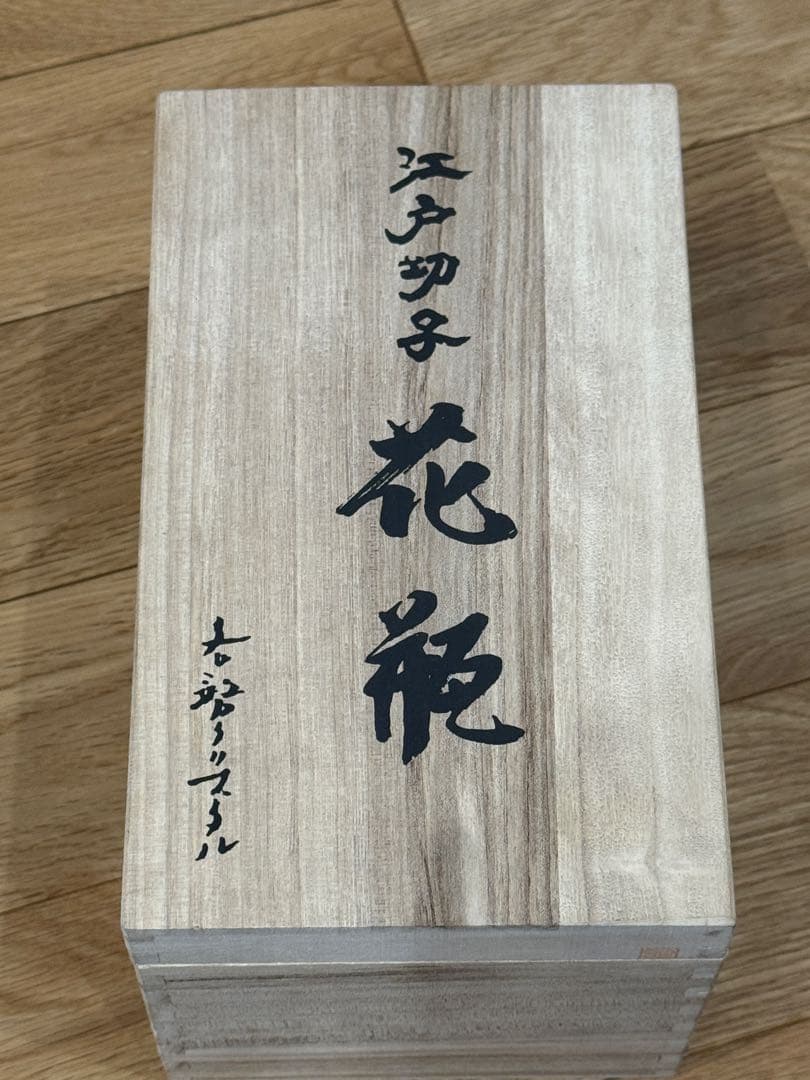 江戸切子
花瓶
各務クリスタル